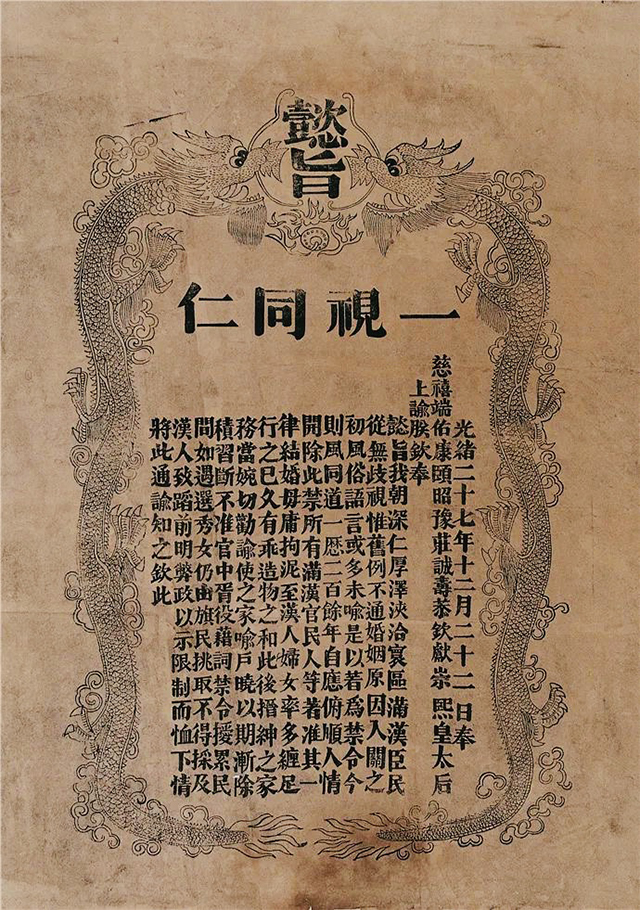 懿旨
一視同仁
光緒二十七年十二月二十二日奉
慈禧端佑康頤昭豫莊誠壽恭欽獻崇熙皇太后
上諭朕欽奉
懿旨我朝深仁厚澤浹洽寰區滿漢臣民
從無歧視惟舊例不通婚姻原因入關之
初風俗語言或多未喻是以若爲禁令今
則風同道一歷二百餘年自應俯順人情
開除此禁所有滿漢官民人等著准其一
律結婚毋庸拘泥至漢人婦女率多纏足
行之已久有乖造物之和此後搢紳之家
務當婉切勸諭使之家喻戶曉以期漸除
積習斷不准官中胥役藉詞禁令擾累民
間如遇選秀女仍由旗民挑取不得採及
漢人致蹈前明弊政以示限制而恤下情
將此通諭知之欽此